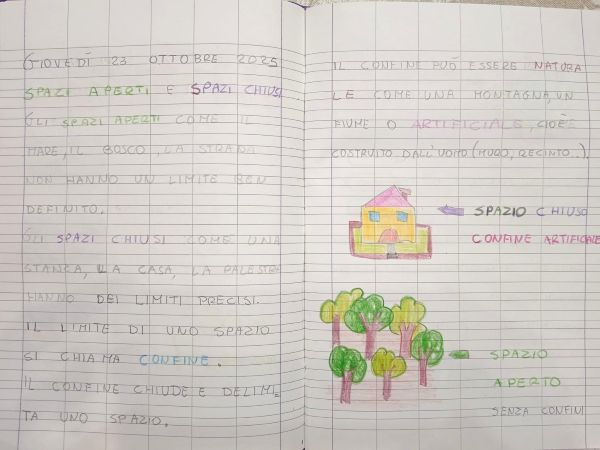 GIOVEDÌ 23 OTTOBRE 2025
SPAZI APERTI E SPAZI CHIUSI
GLI SPAZI APERTI COME IL
MARE, IL BOSCO, LA STRADA
NON HANNO UN LIMITE BEN
DEFINITO.
GLI SPAZI CHIUSI COME UNA
STANZA, LA CASA, LA PALESTRA
HANNO DEI LIMITI PRECISI.
IL LIMITE DI UNO SPAZIO
SI CHIAMA CONFINE.
IL CONFINE CHIUDE E DELIMI-
TA UNO SPAZIO.
IL CONFINE PUÒ ESSERE NATURA
LE COME UNA MONTAGNA, UN
FIUME O ARTIFICIALS, CIOÈ
COSTRUITO DALL'UOMO (MURO, RECINTO...).
SPAZIO CHIUSO
CONFINE ARTIFICIALE
SPAZIO
APERTO
SENZA CONFINI